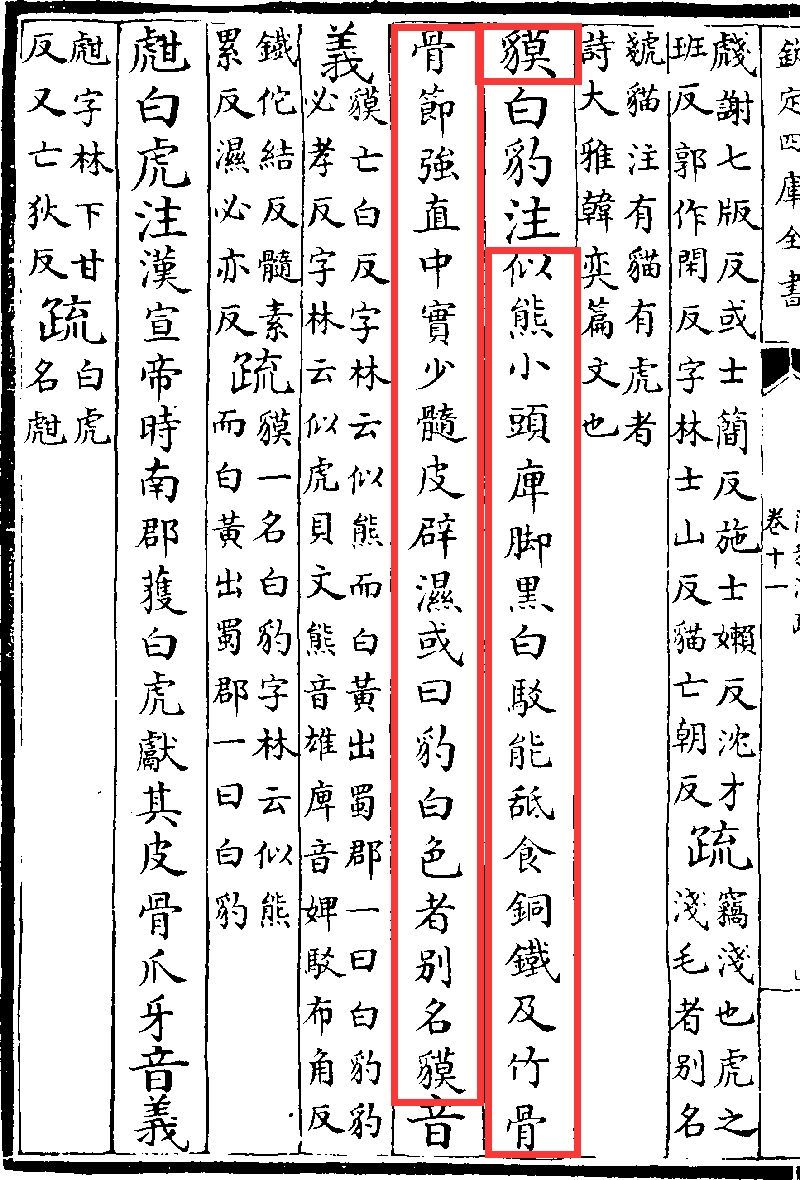 欽定四庫全書
卷十一
虥謝七版反或士簡反施士嬾反沈才
班反郭作閑反字林士山反貓亡朝反
疏
竊淺也虎之
淺毛者別名
虦貓注有貓有虎者
詩大雅韓奕篇文也
貘白豹注似熊小頭庳脚黑白駁能舐食銅鐵及竹骨
骨節強直中實少髓皮辟濕或曰豹白色者别名貘音
義
貘亡白反字林云似熊而白黃出蜀郡一曰白豹豹
必孝反字林云似虎貝文熊音雄庳音婢駁布角反
鐵佗結反髓素
累反濕必亦反
疏
貘一名白豹字林云似熊
而白黃出蜀郡一曰白豹
甝白虎注漢宣帝時南郡獲白虎獻其皮骨爪牙音義
甝字林下甘
反又亡狄反
疏
白虎
名甝